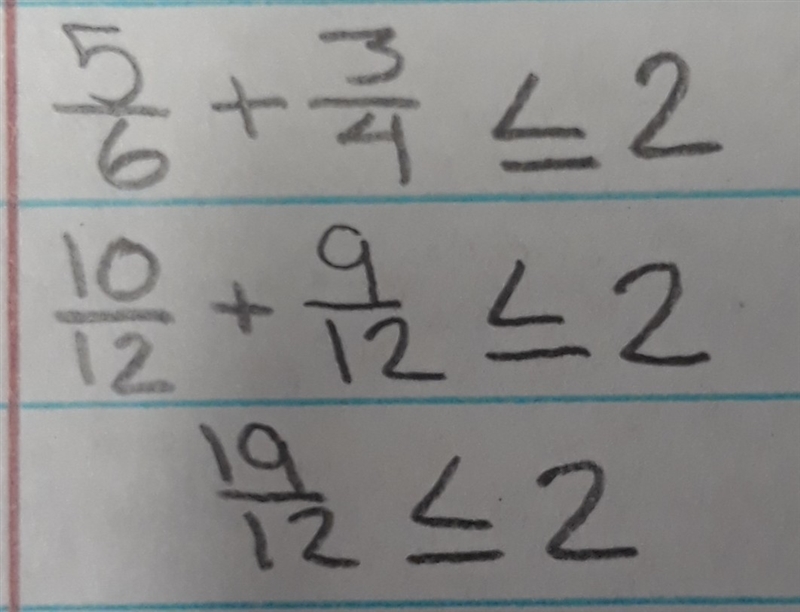 5/6 + 3/4 ≤ 2
10/12 + 9/12 ≤ 2
19/12 ≤ 2